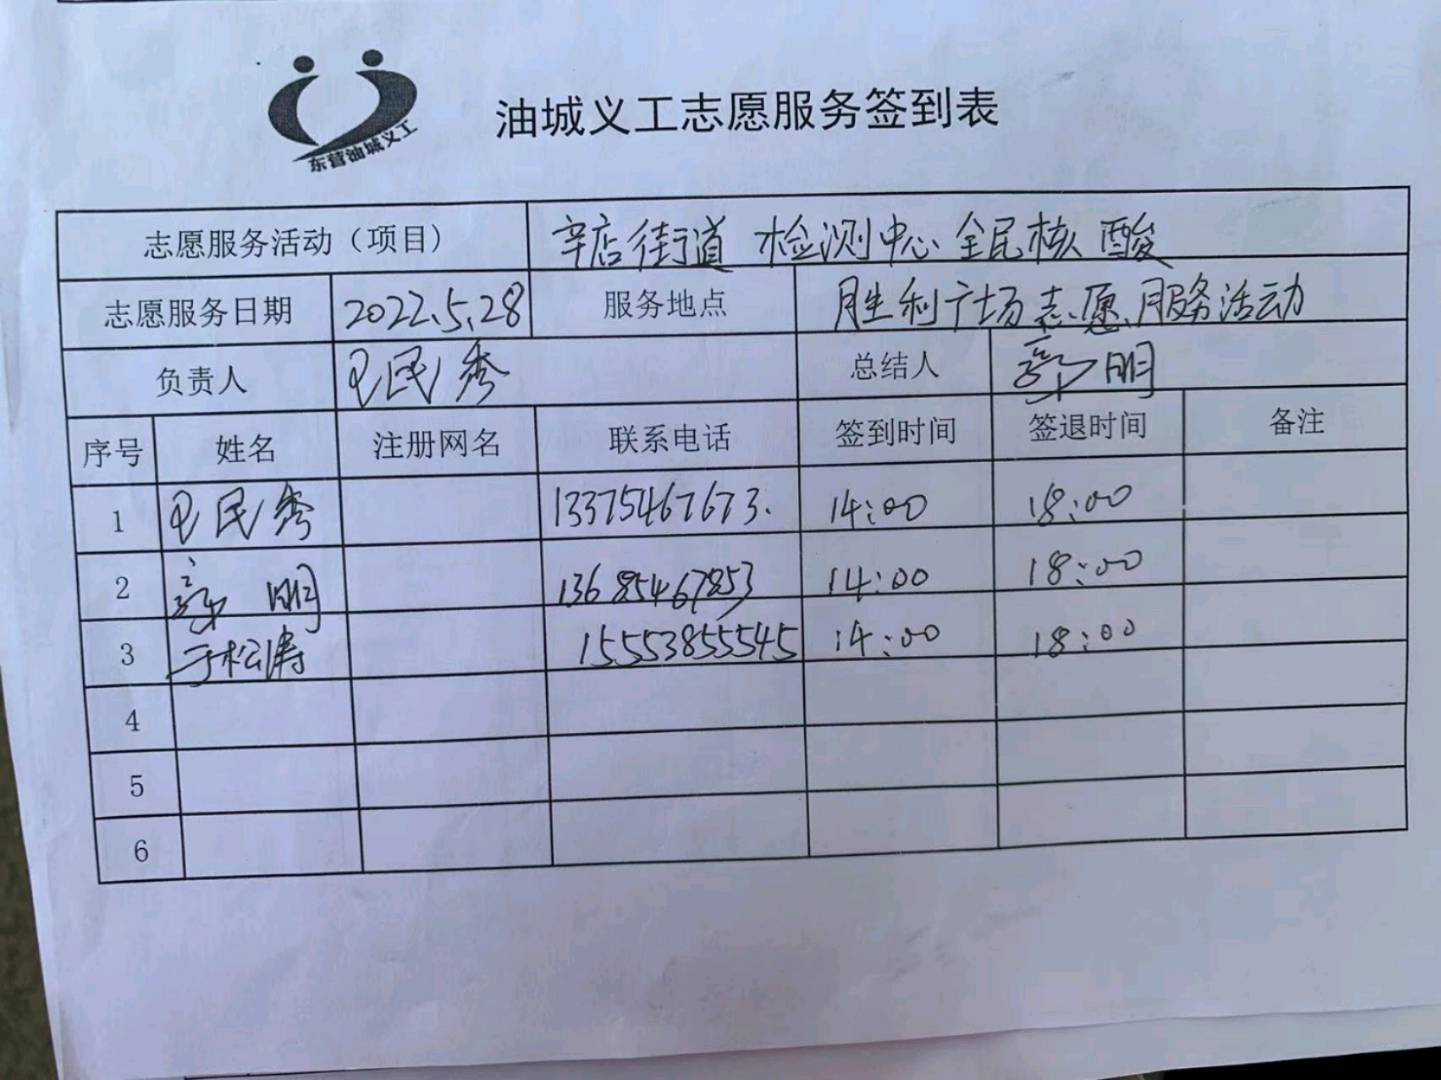 东营油城义工
油城义工志愿服务签到表
志愿服务活动（项目） 辛店街道 检测中心 全民核酸
志愿服务日期 2022.5.28 服务地点 胜利广场志愿服务活动
负责人 王民秀 总结人 郭明
序号 姓名 注册网名 联系电话 签到时间 签退时间 备注
1 王民秀 13375467673. 14:00 18:00
2 郭明 13685467853 14:00 18:00
3 于松涛 15553855545 14:00 18:00
4
5
6